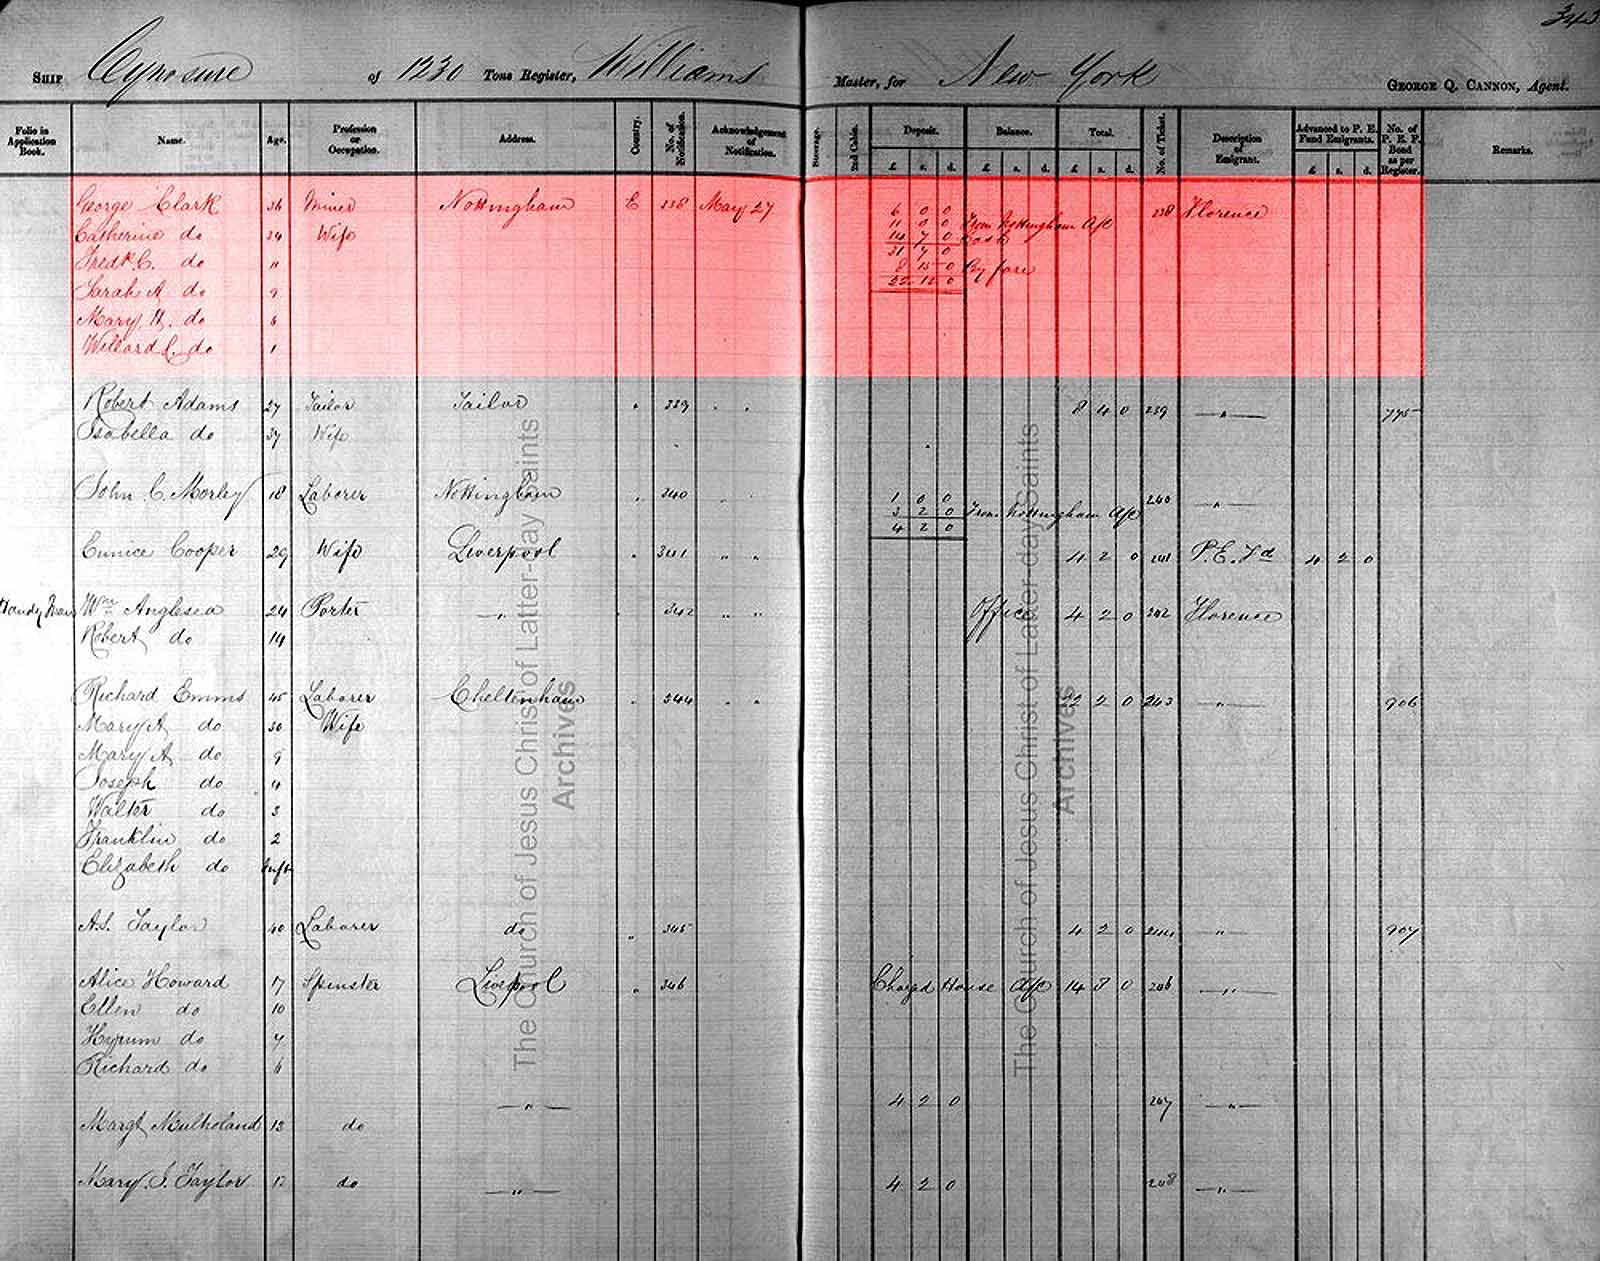 343
Ship Cynosure of 1230 Tons Register, Williams Master, for New York George Q. Cannon, Agent.
Folio in Application Book. Name. Age. Profession or Occupation. Address. Country. No. of Notification. Acknowledgement of Notification. Steerage. 2nd Cabin. Deposit. Balance. Total. No. of Ticket. Description of Emigrant. Advanced to P. E. Fund Emigrants. No. of P. E. F. Bond as per Register. Remarks.
£ s. d. £ s. d. £ s. d. £ s. d.
George Clark 36 Miner Nottingham E 338 May 27 6 0 0 238 Florence
Catherine do 34 Wife 11 0 0 From Nottingham A/c
14 7 0 Cash
Fredk C. do 11 31 7 0
8 15 0 By fare
Sarah A do 9 22 12 0
Mary H. do 6
Willard C. do 1
Robert Adams 27 Tailor Tailor 339 8 4 0 239 " 775
Isabella do 37 Wife
John C. Morley 18 Laborer Nottingham 340 1 0 0 240 "
3 2 0 From Nottingham A/c
4 2 0
Eunice Cooper 29 Wife Liverpool " 341 " " 4 2 0 241 P.E. Fd 4 2 0
Handy Man Wm Anglesea 24 Porter " 342 " " Office 4 2 0 242 Florence
Robert do 14
Richard Emms 45 Laborer Cheltenham " 344 " " 22 2 0 243 " 906
Mary A do 30 Wife
Mary A do 9
Joseph do 4
Walter do 3
Franklin do 2
Elizabeth do Inft
A.S. Taylor 40 Laborer do " 345 4 2 0 244 " 907
Alice Howard 17 Spinster Liverpool " 346 Chargd House A/c 14 8 0 246 "
Ellen do 10
Hyrum do 7
Richard do 6
" 4 2 0 247 "
Margt Mulholand 13 do
Mary J. Taylor 12 do " 4 2 0 248 "
The Church of Jesus Christ of Latter-day Saints
Archives
The Church of Jesus Christ of Latter-day Saints
Archives